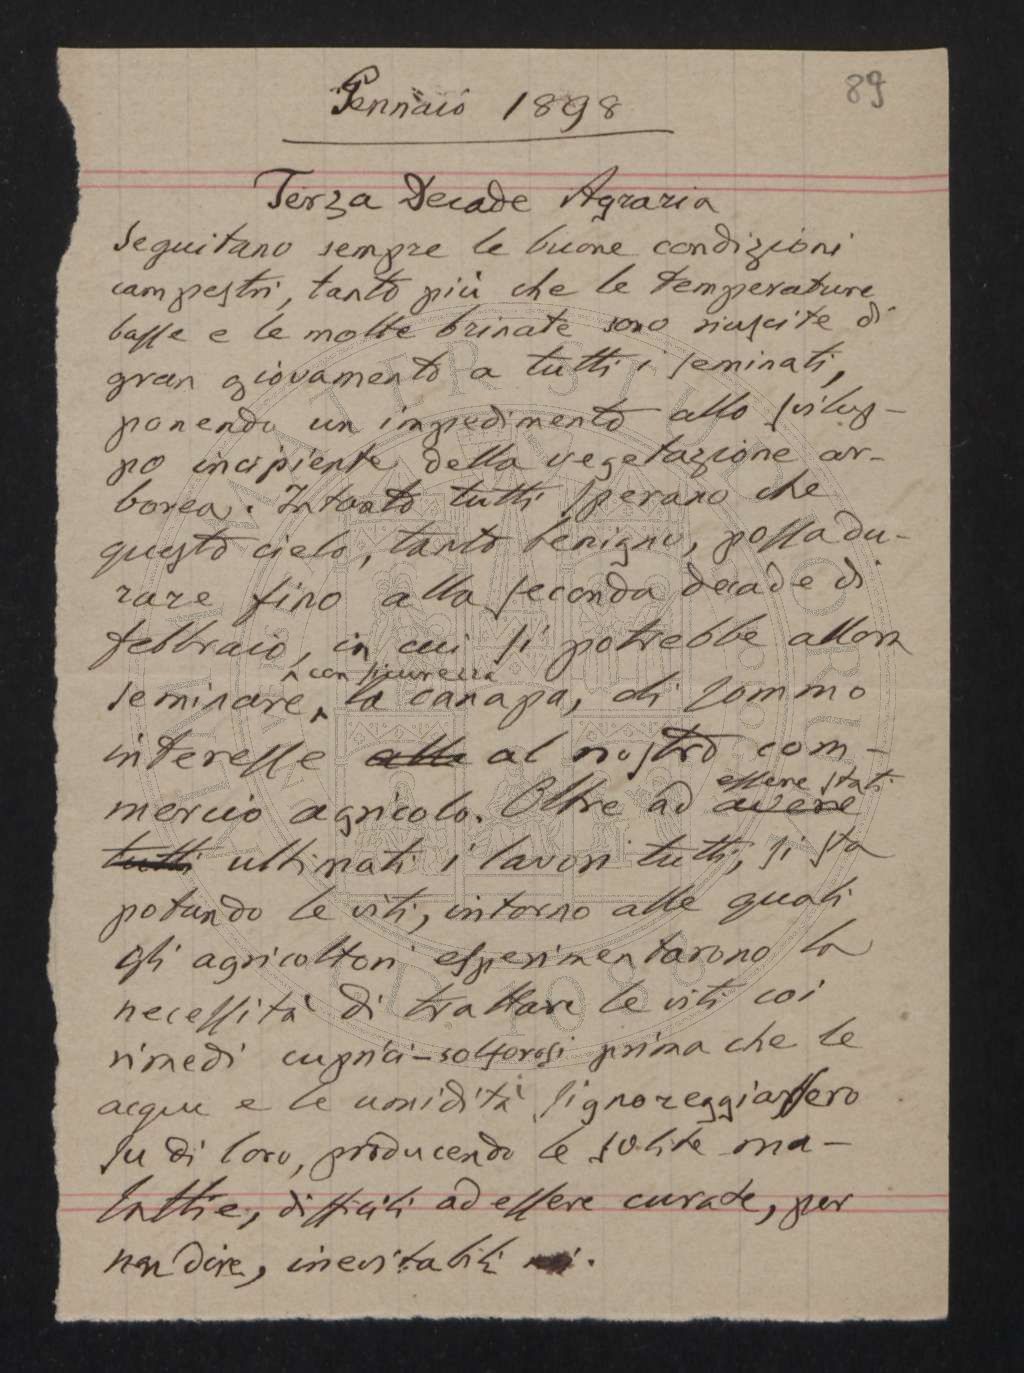 89
Gennaio 1898
Terza Decade Agraria
Seguitano sempre le buone condizioni
campestri, tanto più che le temperature
basse e le molte brinate sono riuscite di
gran giovamento a tutti i seminati,
ponendo un impedimento allo svilup-
po incipiente della vegetazione ar-
borea. Intanto tutti sperano che
questo cielo, tanto benigno, possa du-
rare fino alla seconda decade di
febbraio, in cui si potrebbe allora
con sicurezza
seminare, la canapa, di sommo
interesse alla al nostro com-
essere stati
mercio agricolo. Oltre ad avere
tutti ultimati i lavori tutti, si sta
potando le viti, intorno alle quali
gli agricoltori esperimentarono la
necessità di trattare le viti coi
rimedi cuprici-solforosi prima che le
acque e le umidità signoreggiassero
su di loro, producendo le solite ma-
lattie, difficili ad essere curate, per
non dire, inevitabili.